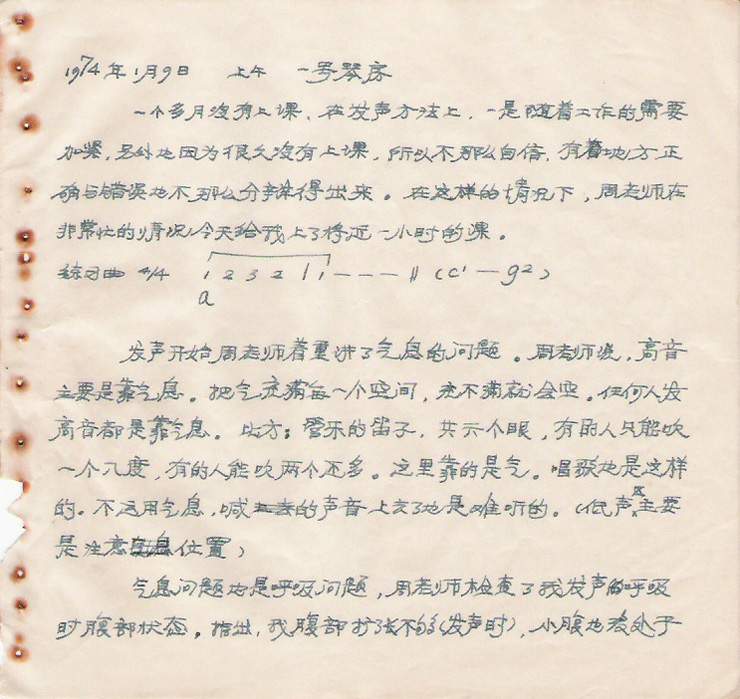 1974年1月9日 上午 一号琴房
一个多月没有上课，在发声方法上，一是随着工作的需要
加紧，另外也因为很久没有上课，所以不那么自信，有着地方正
确与错误也不那么分辩得出来。在这样的情况下，周老师在
非常忙的情况今天给我上了将近一小时的课。
练习曲 4/4 1 2 3 2 1 1 — — — || (c¹ — g²)
a
发声开始周老师着重讲了气息的问题。周老师说，高音
主要是靠气息。把气充满每一个空间，充不满就会空。任何人发
高音都是靠气息。比方：管乐的笛子，共六个眼，有的人只能吹
一个八度，有的人能吹两个还多。这里靠的是气。唱歌也是这样
的。不运用气息，喊的声音上去了也是难听的。（低声区主要
是注意位置）
气息问题也是呼吸问题，周老师检查了我发声的呼吸
时腹部状态。指出，我腹部扩张不够（发声时），小腹也没处于